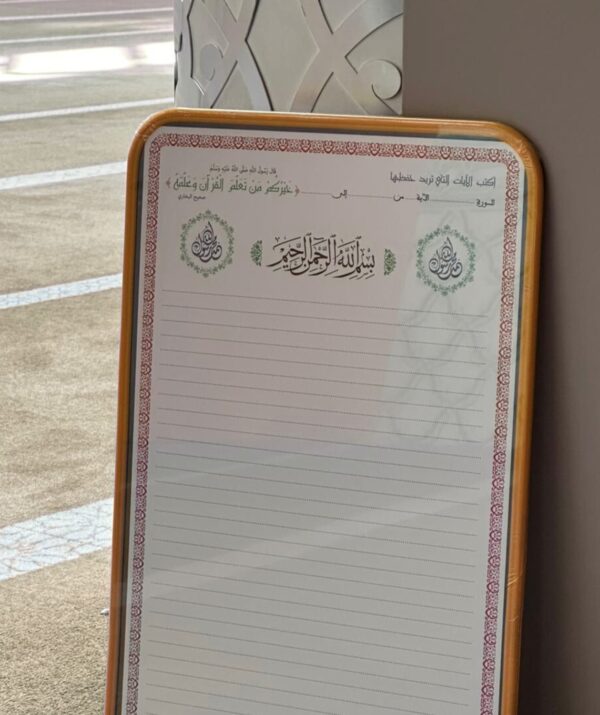 إكتب الآيات التي تريد حفظها
السورة ........ الآية ........ من ........ إلى ........
قَالَ رَسُولُ اللهِ صَلَّى اللهُ عَلَيْهِ وَسَلَّمَ
﴿خَيْرُكُمْ مَنْ تَعَلَّمَ الْقُرْآنَ وَعَلَّمَهُ﴾
صحيح البخاري
محمد رسول الله
بِسْمِ اللَّهِ الرَّحْمَنِ الرَّحِيمِ
محمد رسول الله